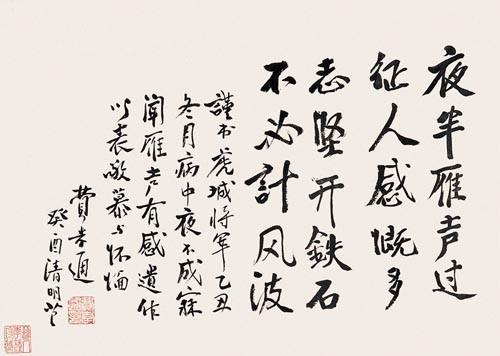 夜半雁声过
征人感慨多
志坚开铁石
不必计风波
谨书虎城将军乙丑
冬月病中夜不成寐
闻雁声有感遗作
以表敬慕与怀缅
费孝通
癸酉清明节